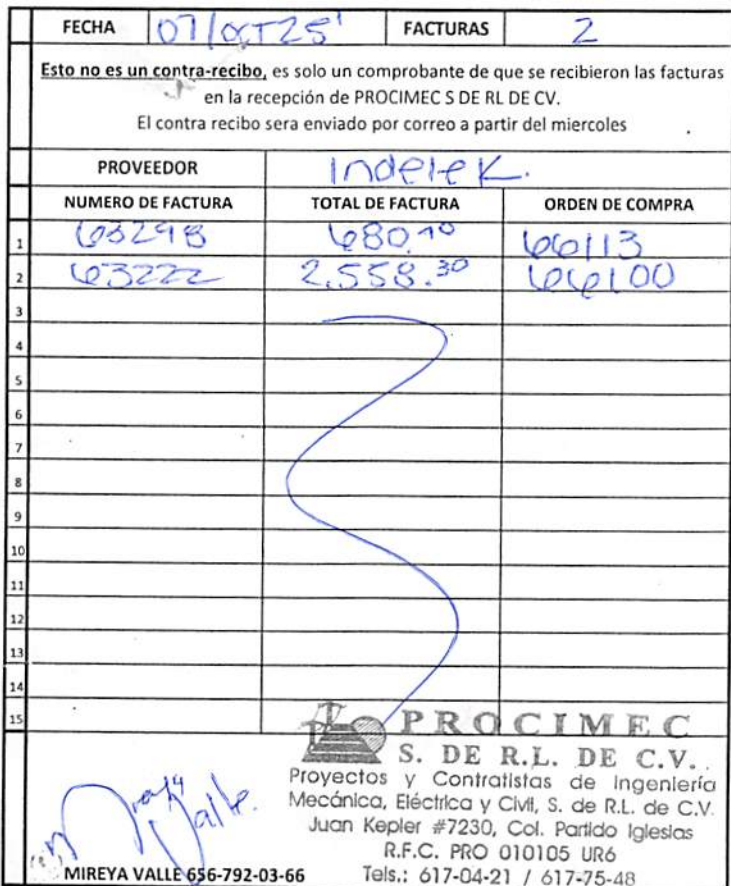 FECHA 07/OCT25' FACTURAS 2
Esto no es un contra-recibo, es solo un comprobante de que se recibieron las facturas
en la recepción de PROCIMEC S DE RL DE CV.
El contra recibo sera enviado por correo a partir del miercoles
PROVEEDOR Indelek.
NUMERO DE FACTURA TOTAL DE FACTURA ORDEN DE COMPRA
1 63298 680.10 66113
2 63222 2,558.30 66100
3
4
5
6
7
8
9
10
11
12
13
14
15
PROCIMEC
S. DE R.L. DE C.V.
Proyectos y Contratistas de Ingeniería
Mecánica, Eléctrica y Civil, S. de R.L. de C.V.
Juan Kepler #7230, Col. Partido Iglesias
R.F.C. PRO 010105 UR6
Tels.: 617-04-21 / 617-75-48
Valle.
MIREYA VALLE 656-792-03-66